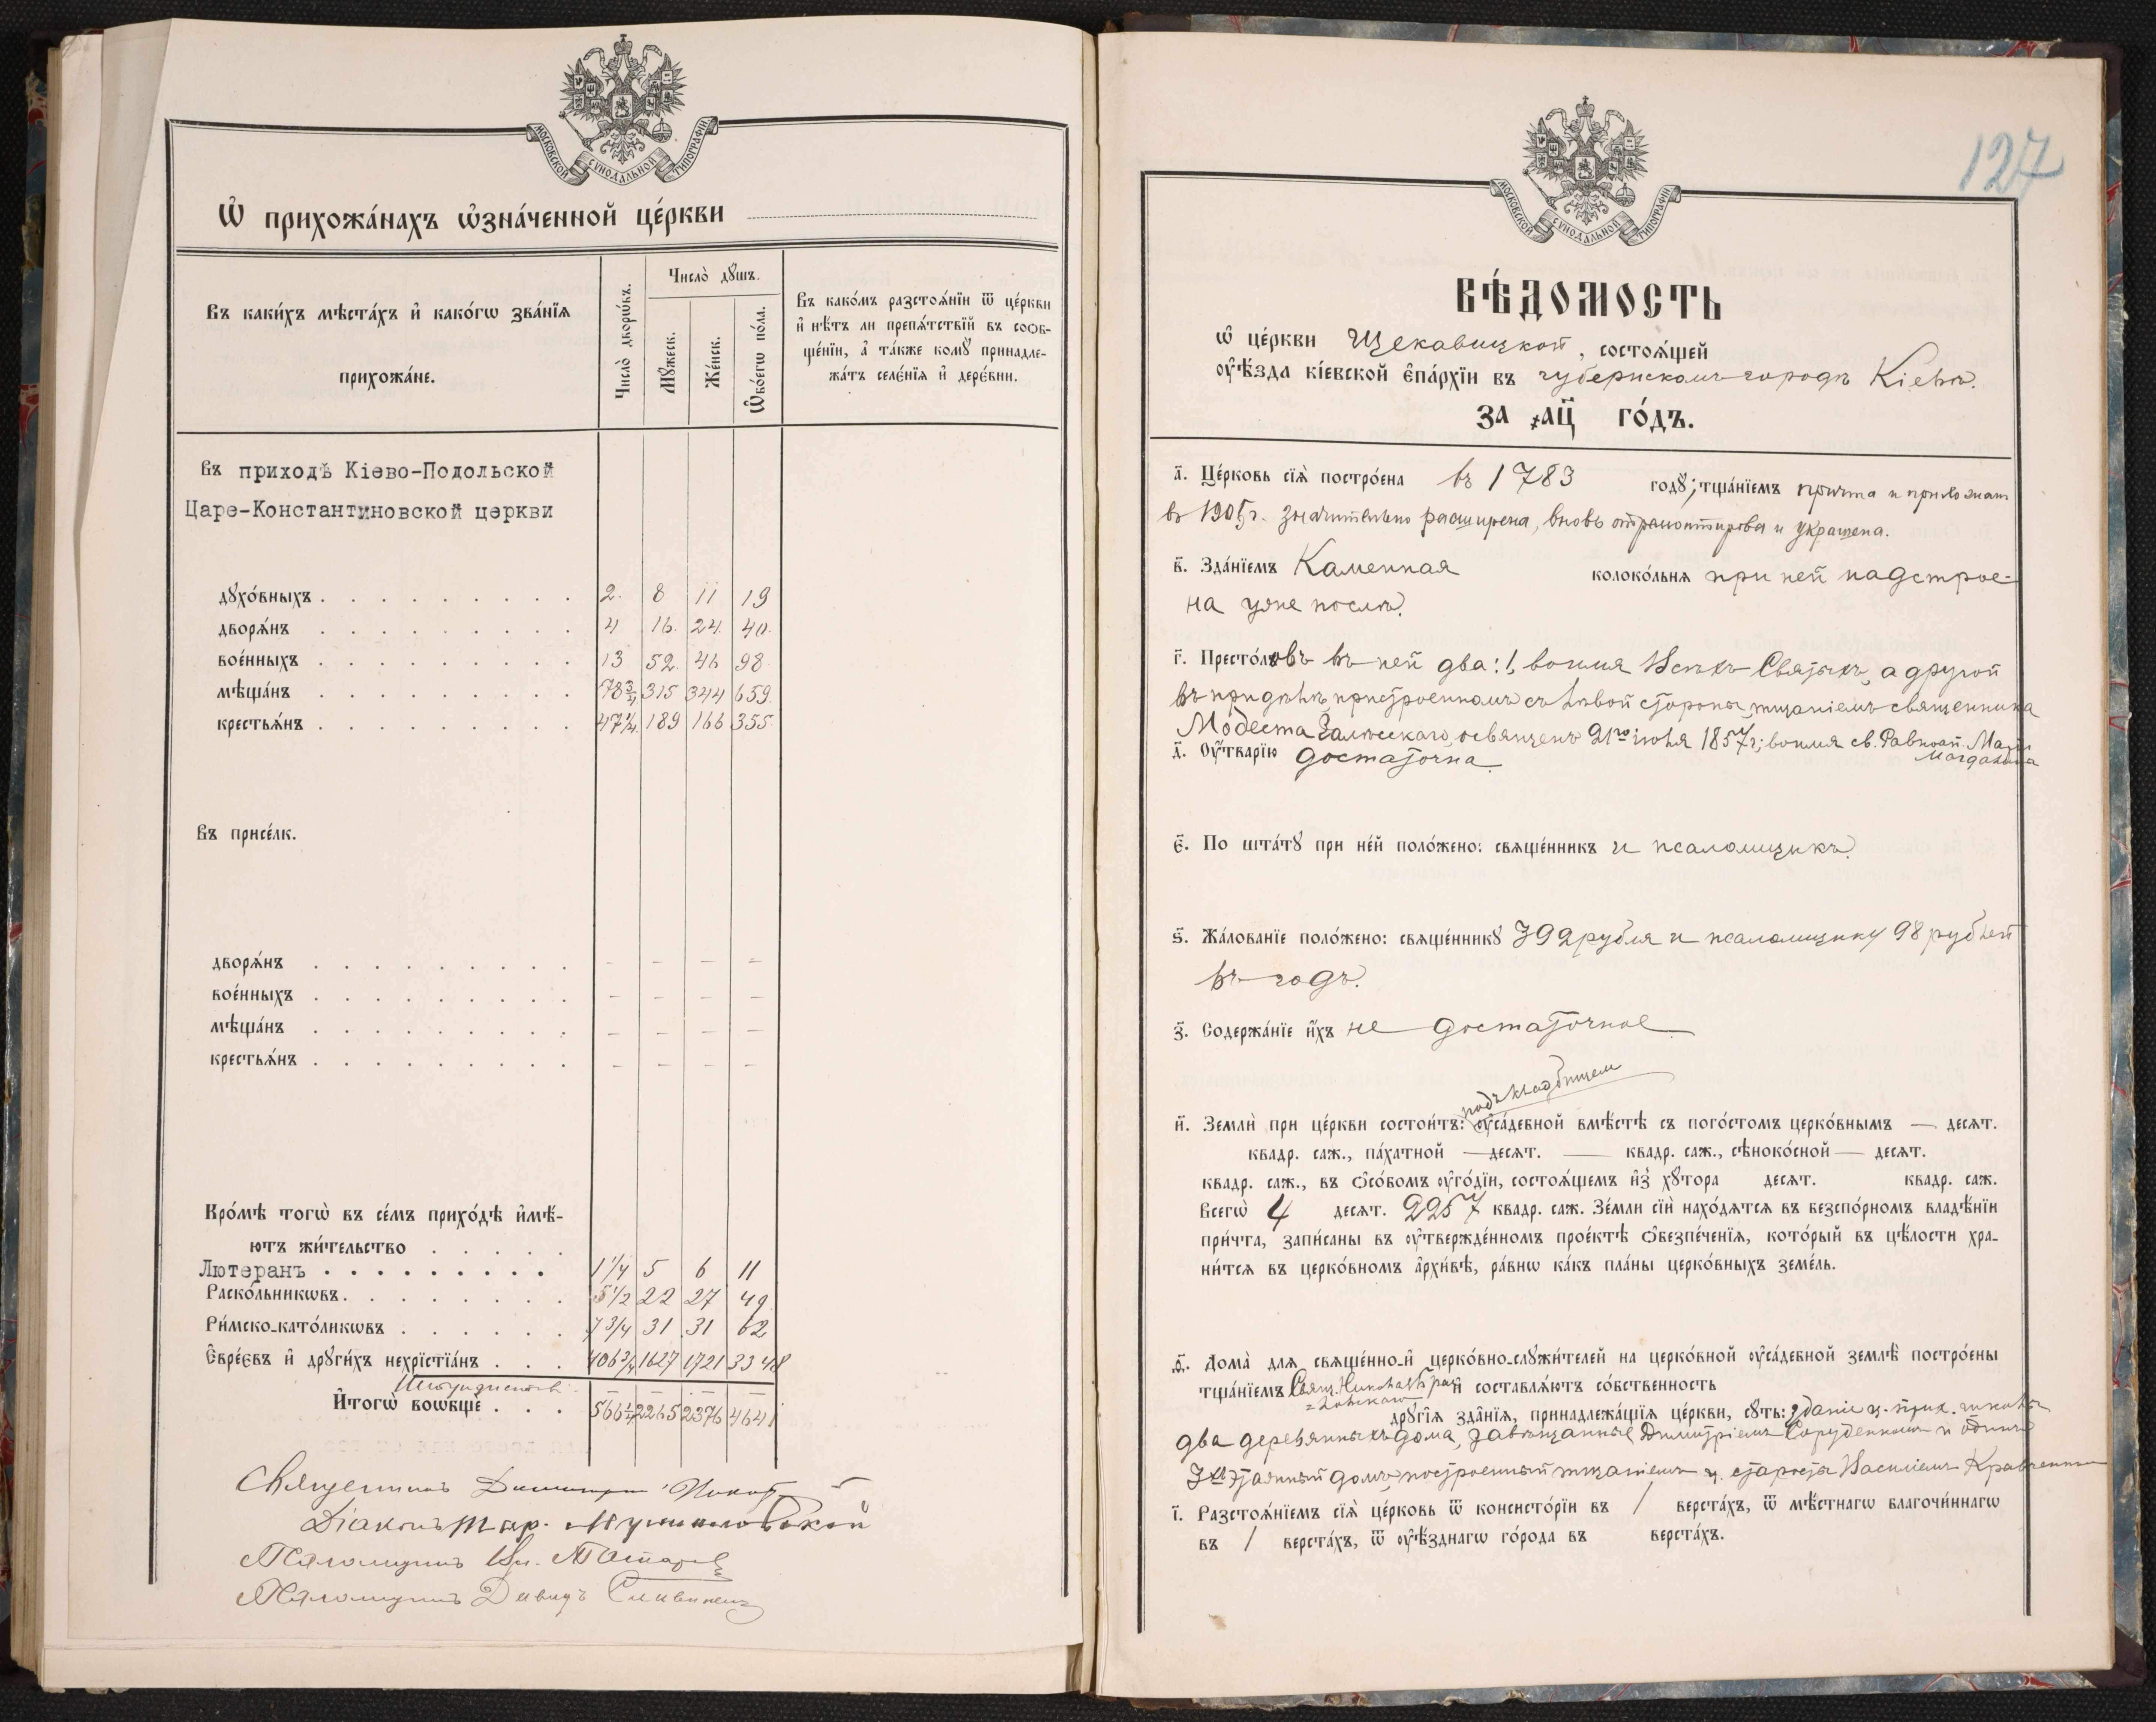 МОСКОВСКОЙ СѴНОДАЛЬНОЙ ТИПОГРАФІИ
Ѽ прихожа́нахъ ѡ҆зна́ченной це́ркви
Въ каки́хъ мѣста́хъ и҆ како́гѡ зва́нїѧ
прихожа́не.
Число̀ дворѡ́въ.
Число̀ дꙋ́шъ.
Мꙋ́жеск.
Же́нск.
Ѻ҆бо́егѡ по́ла.
Въ како́мъ разстоѧ́нїи ѿ це́ркви
и҆ нѣ́тъ ли препѧ́тствїй въ соѻб-
ще́нїи, а҆ та́кже комꙋ̀ принадле-
жа́тъ селє́нїѧ и҆ дере́вни.
Въ приходѣ Кіево-Подольской
Царе-Константиновской церкви
дꙋхо́вныхъ . . . 2. 8 11 19
дворѧ́нъ . . . 4 16. 24. 40.
вое́нныхъ . . . 13 52. 46 98.
мѣща́нъ . . . 78 3/4 315 344 659.
крестьѧ́нъ . . . 47 1/4. 189 166 355.
Въ присе́лк.
дворѧ́нъ . . . – – – –
вое́нныхъ . . . – – – –
мѣща́нъ . . . – – – –
крестьѧ́нъ . . . – – – –
Кро́мѣ тогѡ̀ въ се́мъ прихо́дѣ и҆мѣ́-
ютъ жи́тельство . . . . .
Лютеранъ . . . 1 1/4 5 6 11
Раско́льникѡвъ . . . 5 1/2 22 27 49
Ри́мско-като́ликѡвъ . . . 7 3/4 31 31 62
Є҆вре́євъ и҆ дрꙋги́хъ нехрїстїа́нъ . . . 406 3/4 1627 1721 3348
Штундистовъ – – – –
И҆тогѡ̀ воѡбщѐ . . . 566 1/4 2265 2376 4641
Священникъ Димитрій
Діаконъ
Псаломщикъ
Псаломщикъ Давидъ
127
МОСКОВСКОЙ СѴНОДАЛЬНОЙ ТИПОГРАФІИ
ВѢ́ДОМОСТЬ
ѡ҆ це́ркви Щекавицкой, состоѧ́щей
ᲂу҆ѣ́зда кі́евской є҆па́рхїи въ губернскомъ городѣ Кіевѣ.
За ҂ац҃і го́дъ.
а҃. Це́рковь сїѧ̀ постро́ена въ 1783 годꙋ̀; тща́нїемъ причта и прихожанъ
въ 1905г. значительно расширена, вновь отремонтирована и украшена.
в҃. Зда́нїемъ Каменная колоко́льнѧ при ней надстрое-
на уже послѣ.
г҃. Престо́ловъ въ ней два: 1, во имя Всѣхъ Святыхъ, а другой
въ придѣлѣ, пристроенномъ съ лѣвой стороны, тщаніемъ священника
Модеста Галѣсскаго, освященъ 21го іюля 1857 г; во имя св. Равноап. Маріи
Магдалины
д҃. Оу҆́тварїю достаточна.
є҃. По шта́тꙋ при не́й поло́жено: свѧще́нникъ и псаломщикъ.
ѕ҃. Жа́лованїе поло́жено: свѧще́нникꙋ 392 рубля и псаломщику 98 рублей
въ годъ.
з҃. Содержа́нїе и҆́хъ не достаточное
подъ кладбищем
и҃. Землѝ при це́ркви состои́тъ: ᲂу҆са́дебной вмѣ́стѣ съ пого́стомъ церко́внымъ — десѧт.
квадр. саж., па́хатной — десѧт. — квадр. саж., сѣноко́сной — десѧт.
квадр. саж., въ ѻ҆со́бомъ ᲂу҆го́дїи, состоѧ́щемъ и҆з̾ хꙋ́тора десѧт. квадр. саж.
Всегѡ̀ 4 десѧт. 2257 квадр. саж. Зе́мли сїѝ нахо́дѧтсѧ въ безспо́рномъ владѣ́нїи
при́чта, запи́саны въ ᲂу҆твержде́нномъ прое́ктѣ ѻ҆безпе́ченїѧ, кото́рый въ цѣ́лости хра-
ни́тсѧ въ церко́вномъ а҆рхи́вѣ, ра́внѡ ка́къ пла́ны церко́вныхъ земе́ль.
ѳ҃. Дома̀ длѧ свѧще́нно-и҆ церко́вно-слꙋжи́телей на церко́вной ᲂу҆са́дебной землѣ̀ постро́ены
тща́нїемъ Свящ. и҆ составлѧ́ютъ со́бственность
дрꙋгі̑ѧ зда̑нїѧ, принадлежа́щїѧ це́ркви, сꙋ́ть: зданіе ц.-прих. школы
два деревянныхъ дома, завѣщанные Димитріемъ и одинъ
3хъ этажный домъ, построенный тщаніемъ ц. старосты Василіемъ Кравченкомъ
і҃. Разстоѧ́нїемъ сїѧ̀ це́рковь ѿ консисто́рїи въ 1 верста́хъ, ѿ мѣ́стнагѡ благочи́ннагѡ
въ 1 верста́хъ, ѿ ᲂу҆ѣ́зднагѡ го́рода въ верста́хъ.